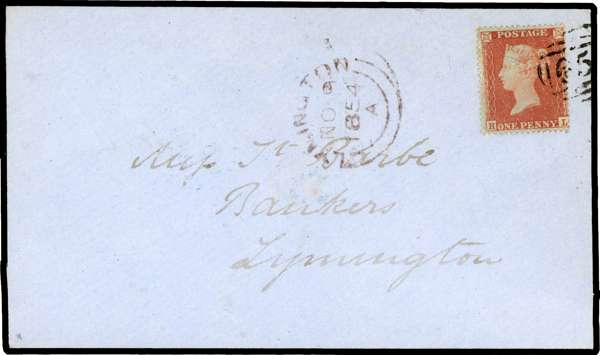 POSTAGE
ONE PENNY
INGTON
NO 9
1854
A
St. Barbe
Bankers
Lymington